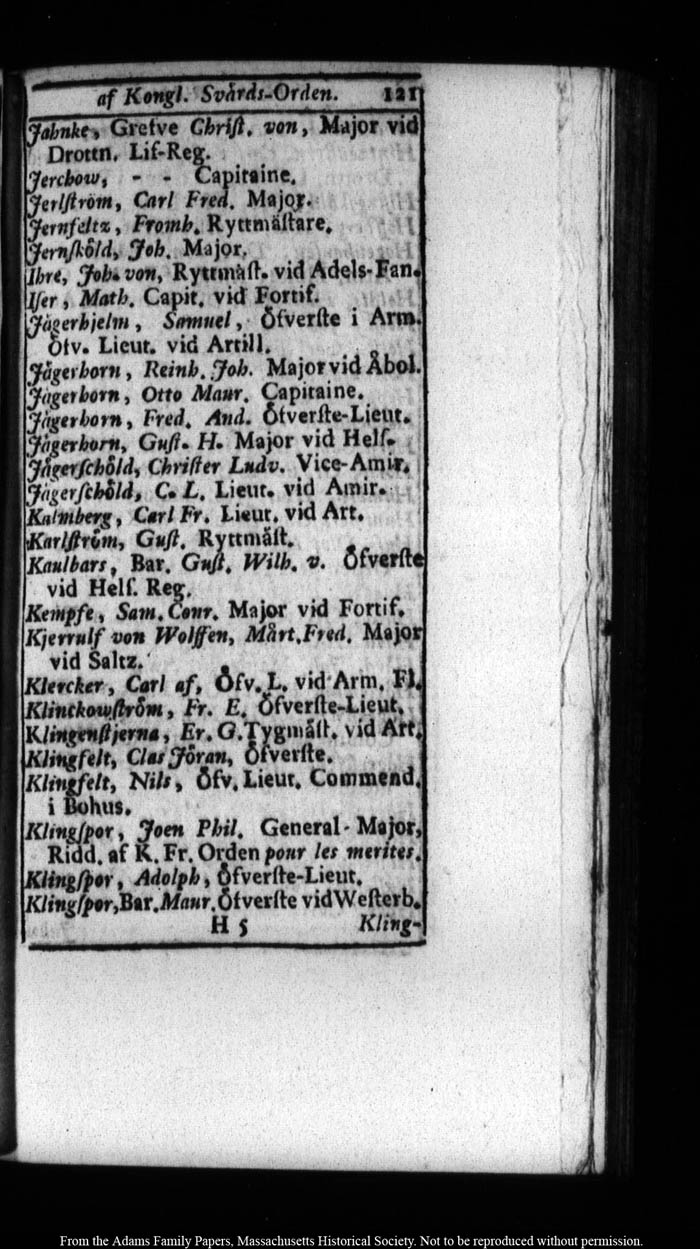 af Kongl. Svårds-Orden. 121
Jahnke, Grefve Chriſt. von, Major vid
Drottn. Lif-Reg.
Jerchow, - - Capitaine.
Jerlſtröm, Carl Fred. Major.
Jernfeltz, Fromh. Ryttmåſtare.
Jernſkôld, Joh. Major.
Ihre, Joh. von, Ryttmåſt. vid Adels-Fan.
Iſer, Math. Capit. vid Fortif.
Jågerhjelm, Samuel, Ôfverſte i Arm.
Ôfv. Lieut. vid Artill.
Jågerhorn, Reinh. Joh. Major vid Åbol.
Jågerhorn, Otto Maur. Capitaine.
Jågerhorn, Fred. And. Ôfverſte-Lieut.
Jågerhorn, Guſt. H. Major vid Helſ.
Jågerſchôld, Chriſter Ludv. Vice-Amir.
Jågerſchôld, C. L. Lieut. vid Amir.
Kalmberg, Carl Fr. Lieut. vid Art.
Karlſtrôm, Guſt. Ryttmåſt.
Kaulbars, Bar. Guſt. Wilh. v. Ôfverſte
vid Helſ. Reg.
Kempfe, Sam. Conr. Major vid Fortif.
Kjerrulf von Wolffen, Mårt. Fred. Major
vid Saltz.
Klercker, Carl af, Ôfv. L. vid Arm. Fl.
Klinckowſtrôm, Fr. E. Ôfverſte-Lieut.
Klingenſtjerna, Er. G. Tygmåſt. vid Art.
Klingfelt, Clas Jôran, Ôfverſte.
Klingfelt, Nils, Ôfv. Lieut. Commend.
i Bohus.
Klingſpor, Joen Phil. General-Major,
Ridd. af K. Fr. Orden pour les merites.
Klingſpor, Adolph, Ôfverſte-Lieut.
Klingſpor, Bar. Maur. Ôfverſte vid Weſterb.
H 5 Kling-
From the Adams Family Papers, Massachusetts Historical Society. Not to be reproduced without permission.